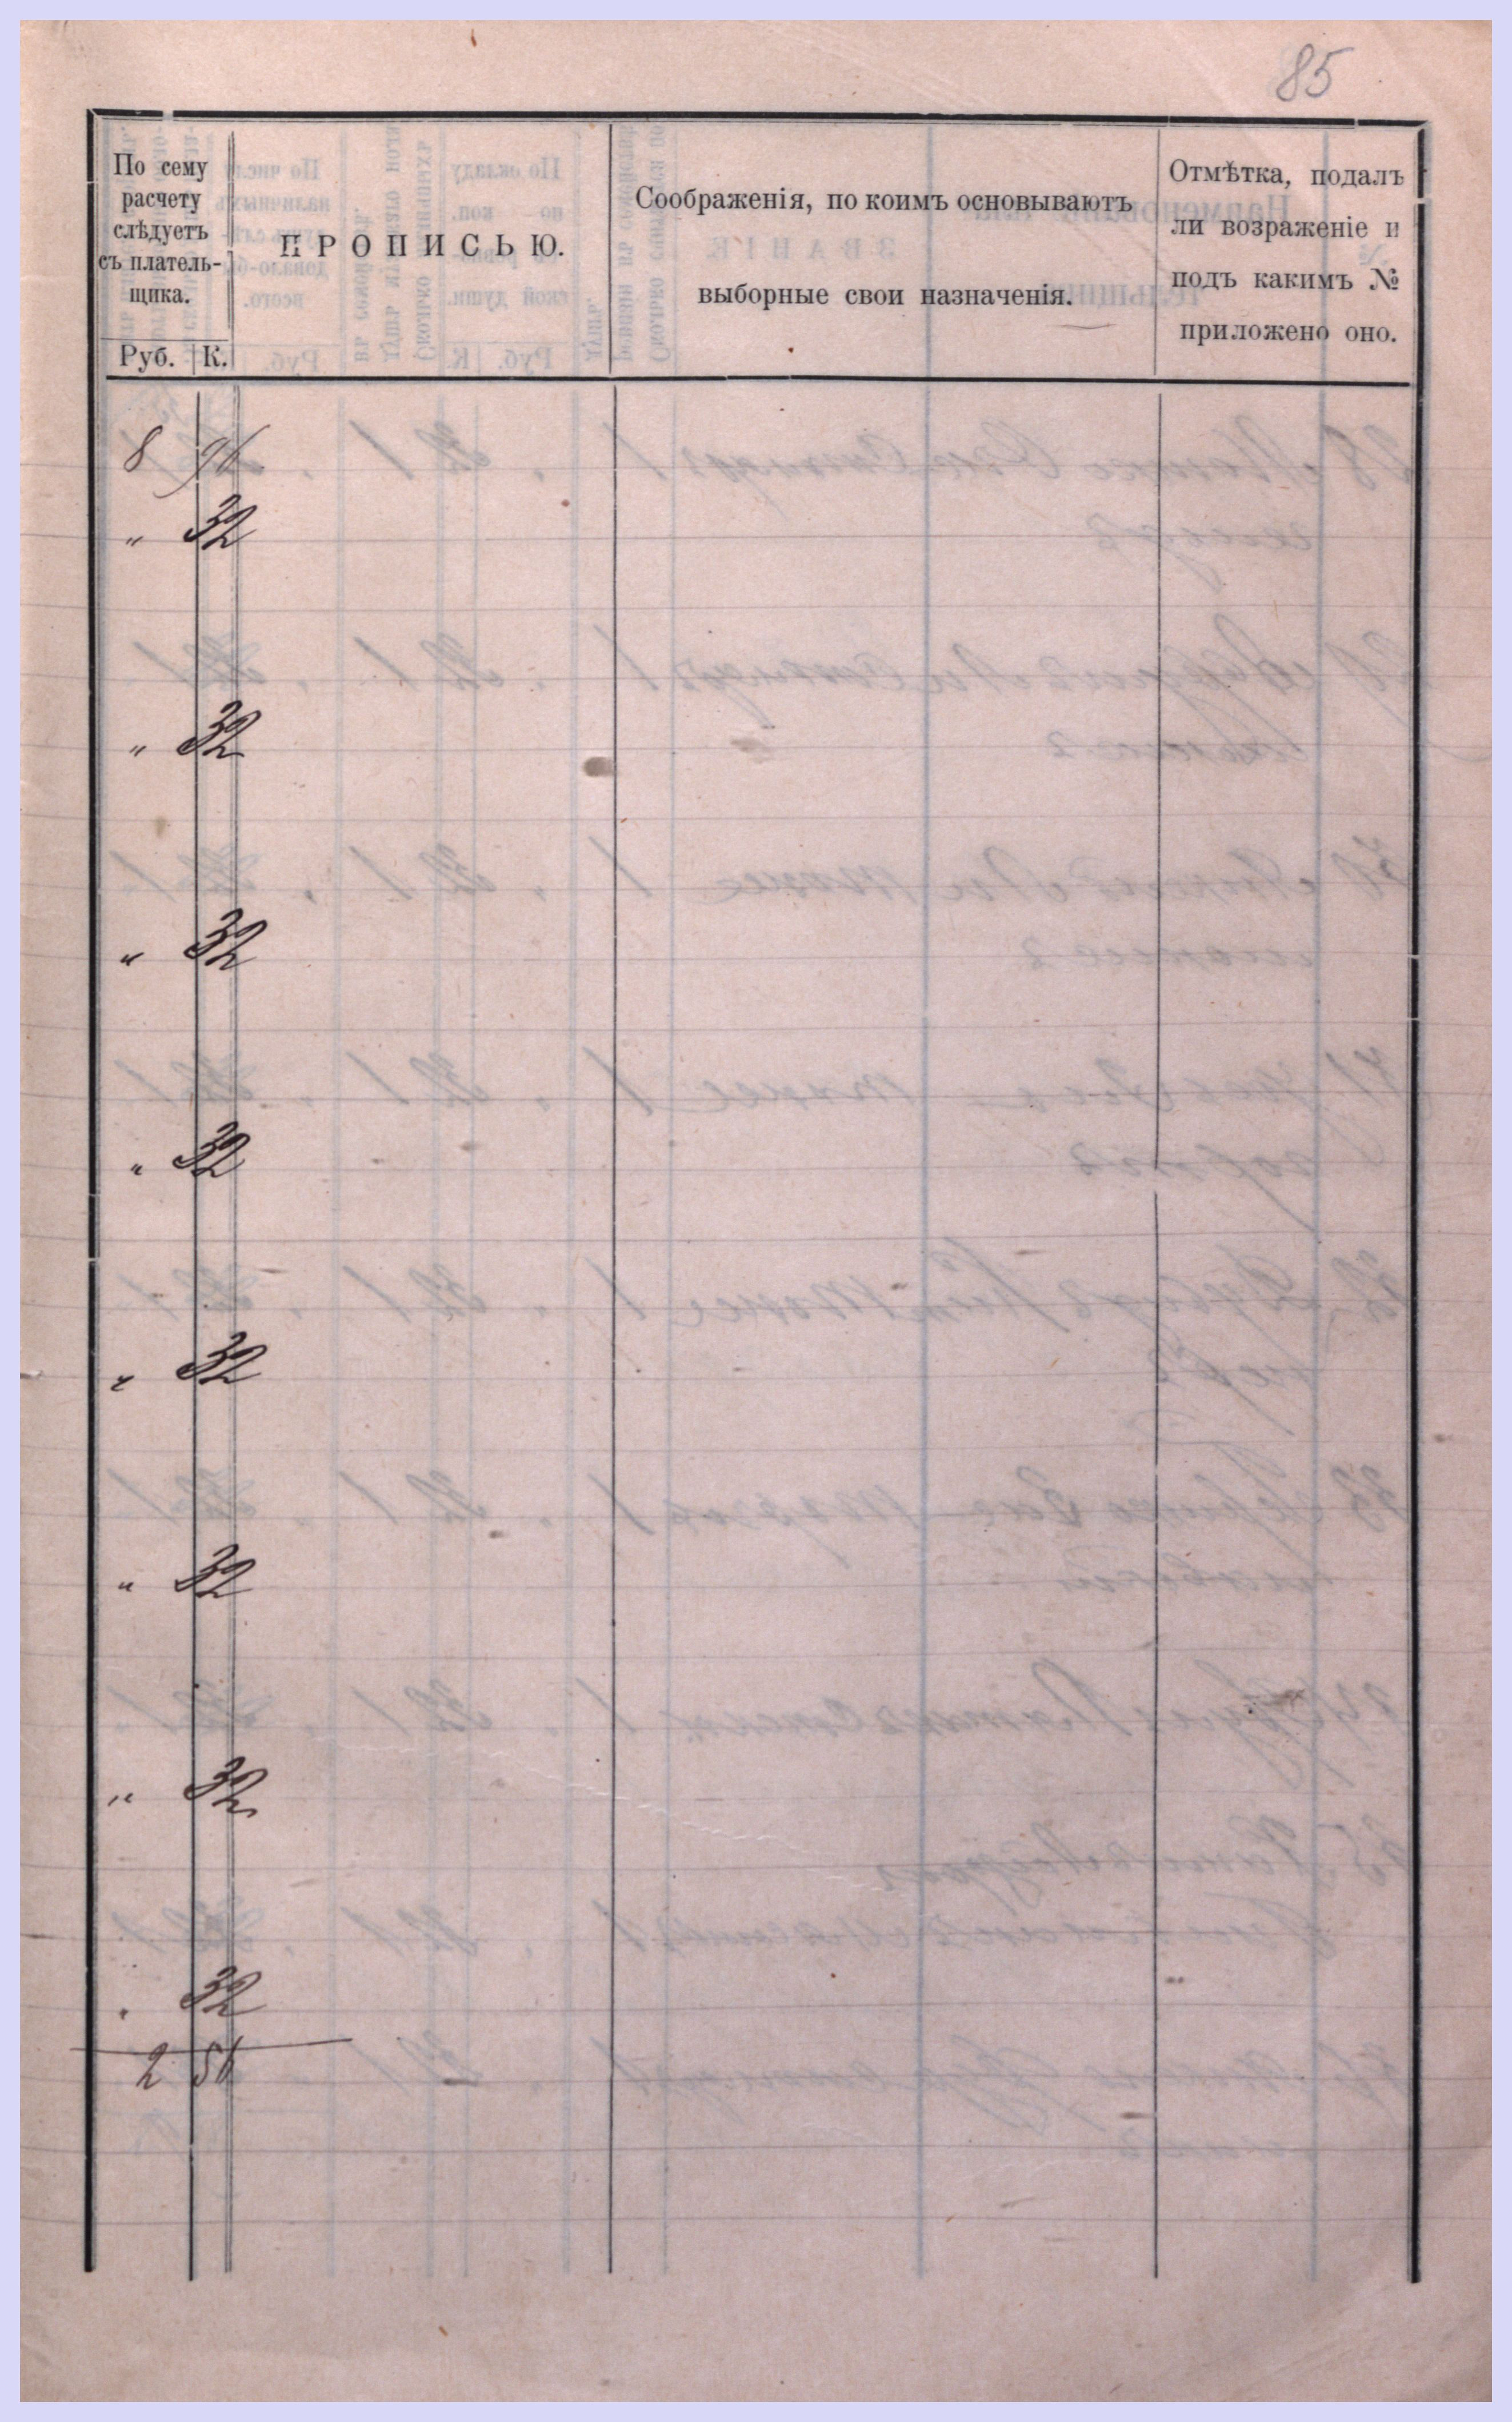 85
По сему
расчету
слѣдуетъ
съ платель-
щика.
Руб. К.
ПРОПИСЬЮ.
Соображенія, по коимъ основываютъ
выборные свои назначенія.
Отмѣтка, подалъ
ли возраженіе и
подъ какимъ №
приложено оно.
8 96
" 32
" 32
" 32
" 32
" 32
" 32
" 32
" 32
2 56